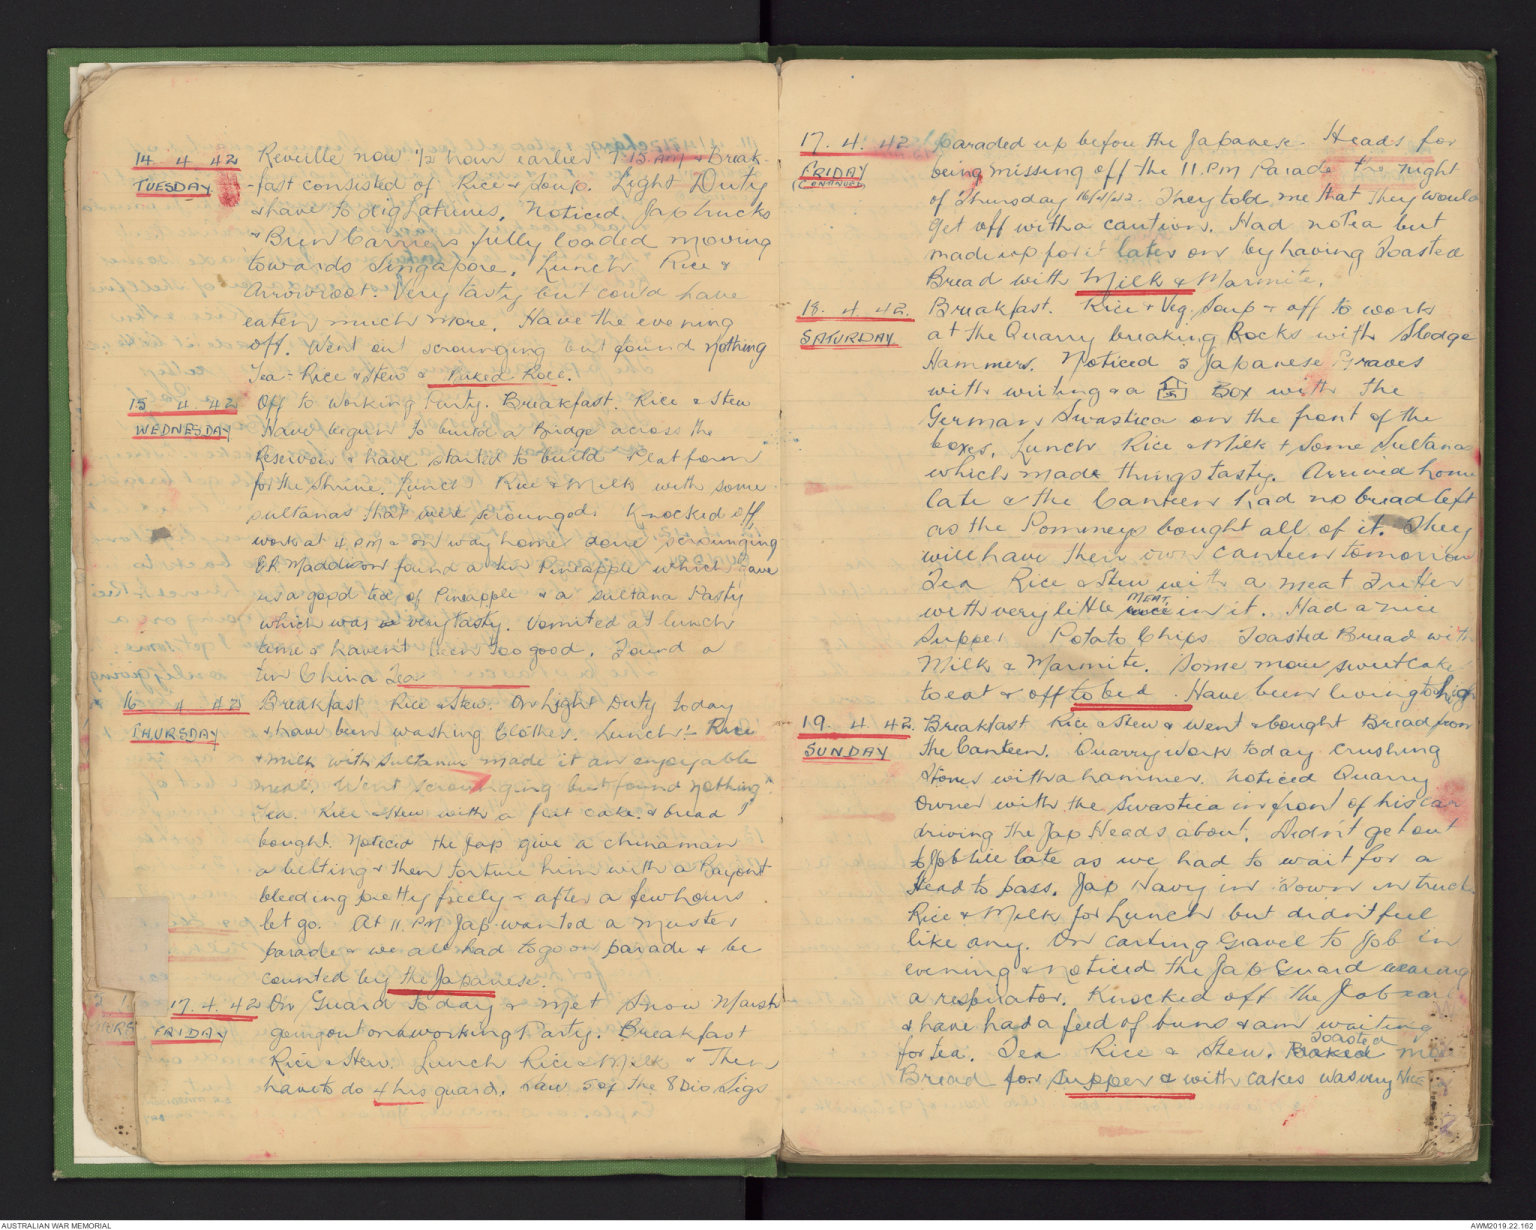 14 4 42 Reveille now 1/2 hour earlier 7 15 AM & Break-
TUESDAY -fast consisted of Rice & Soup. Light Duty
& have to dig Latrines. Noticed Jap trucks
& Bren Carriers fully loaded moving
towards Singapore. Lunch Rice &
Arrowroot. Very tasty but could have
eaten much more. Have the evening
off. Went out scrounging but found nothing
Tea - Rice & Stew & Baked Roll.
15 4 42 Off to Working Party. Breakfast. Rice & Stew
WEDNESDAY Have begun to build a Bridge across the
Reservoir & have started to build Platform
for the Shrine. Lunch Rice & Milk with some
sultanas that were scrounged. Knocked off
work at 4 PM & on way home done scrounging
Maddison found a tin Pineapple which gave
us a good tea of Pineapple & a Sultana Pasty
which was very tasty. Vomited at lunch
time & haven't been too good. Found a
tin China Tea
16 4 42 Breakfast Rice & Stew. On Light Duty today
THURSDAY & have been washing Clothes. Lunch:- Rice
& milk with Sultanas made it an enjoyable
meal. Went scrounging but found nothing.
Tea. Rice & Stew with a flat cake & bread I
bought. Noticed the Jap give a chinaman
a belting & then torture him with a Bayont
bleeding pretty freely & after a few hours
let go. At 11 PM Jap wanted a muster
parade & we all had to go on parade & be
counted by the Japanese.
17.4.42 On Guard today & met Snow Marsh
FRIDAY going out on a working Party. Breakfast
Rice & Stew. Lunch Rice & Milk & Then
have to do 4 hrs guard. Saw 5 of the 8 Div Sigs
17. 4. 42 paraded up before the Japanese Heads for
FRIDAY being missing off the 11.PM Parade the night
(CONTINUED) of Thursday 16/4/42. They told me that they would
get off with a caution. Had no tea but
made up for it later on by having Toasted
Bread with Milk & Marmite.
18. 4. 42. Breakfast. Rice & Veg. Soup & off to work
SATURDAY at the Quarry breaking Rocks with Sledge
Hammers. Noticed 3 Japanese Graves
with writing & a Box with the
German Swastica on the front of the
boxes. Lunch Rice & Milk & some Sultanas
which made things tasty. Arrived home
late & the Canteen had no bread left
as the Pommeys bought all of it. They
will have their own canteen tomorrow
Tea Rice & Stew with a meat Fritter
with very little MEAT in it. Had a nice
Supper Potato Chips Toasted Bread with
Milk & Marmite. Some more sweet cake
to eat & off to bed. Have been living to high
19. 4. 42. Breakfast Rice & Stew & went & bought Bread from
SUNDAY the Canteen. Quarry work today crushing
Stones with a hammer. Noticed Quarry
Owner with the Swastica in front of his car
driving the Jap Heads about. Didn't get out
to Job till late as we had to wait for a
Head to pass. Jap Navy in town in trucks
Rice & Milk for Lunch but didn't feel
like any. On carting Gravel to Job in
evening & noticed the Jap Guard wearing
a respirator. Knocked off the Job
& have had a feed of buns & am waiting
for tea. Tea Rice & Stew. Toasted
Bread for supper & with cakes was very NICE
AUSTRALIAN WAR MEMORIAL
AWM2019.22.162